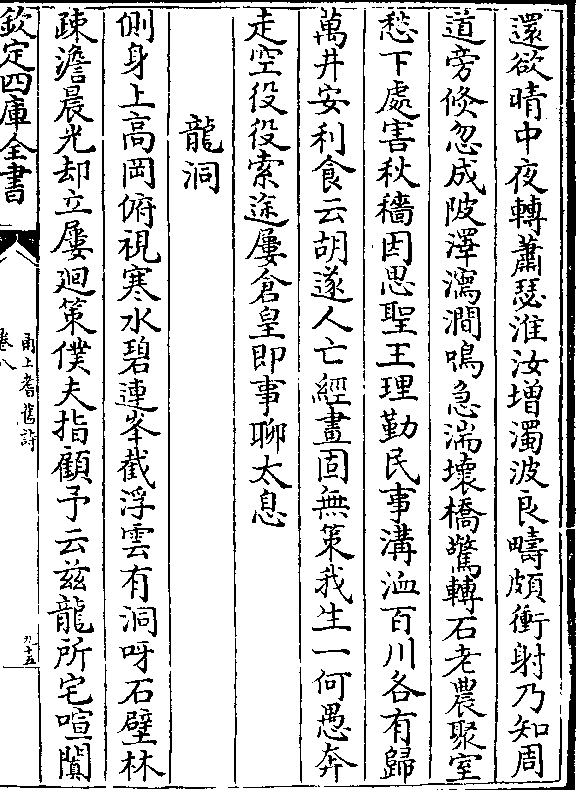 還欲晴中夜轉蕭瑟淮汝增濁波良疇頗衝射乃知周
道旁倐忽成陂澤瀉澗鳴急湍壞橋驚轉石老農聚室
愁下處害秋穡因思聖王理勤民事溝洫百川各有歸
萬井安利食云胡遂人亡經畫固無策我生一何愚奔
走空役役索途屢倉皇即事聊太息
龍洞
側身上高岡俯視寒水碧連峯截浮雲有洞呀石壁林
疎澹晨光却立屢廻策僕夫指顧予云兹龍所宅喧闐
欽定四庫全書
甬上耆舊詩
卷八